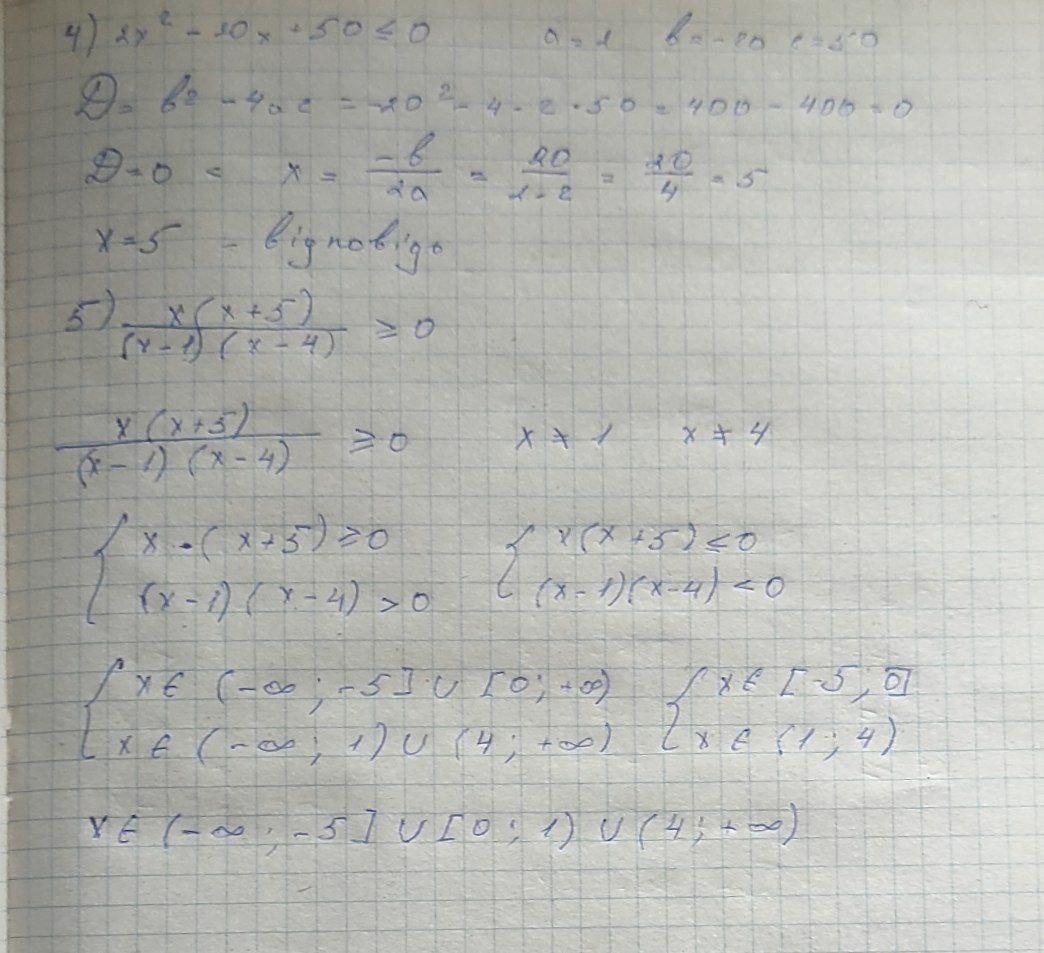 4) 2x² - 20x + 50 ≤ 0 a = 2 b = -20 c = 50
D = b² - 4ac = -20² - 4 · 2 · 50 = 400 - 400 = 0
D = 0 = x = -b/2a = 20/2·2 = 20/4 = 5
x = 5 - відповідь
5) x(x+5)/(x-1)(x-4) ≥ 0
x(x+5)/(x-1)(x-4) ≥ 0 x ≠ 1 x ≠ 4
{ x · (x+5) ≥ 0 { x(x+5) ≤ 0
(x-1)(x-4) > 0 (x-1)(x-4) < 0
{ x ∈ (-∞; -5] ∪ [0; +∞) { x ∈ [-5; 0]
x ∈ (-∞; 1) ∪ (4; +∞) x ∈ (1; 4)
x ∈ (-∞; -5] ∪ [0; 1) ∪ (4; +∞)